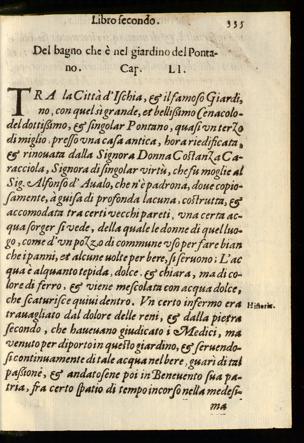 Libro secondo. 335
Del bagno che è nel giardino del Ponta-
no. Cap. LI.
TRA la Città d'Ischia, & il famoso Giardi,
no, con quel sì grande, et bellissimo Cenacolo
del dottissimo, & singolar Pontano, quasi vn terzo
di miglio, presso vna casa antica, hora riedificata,
& rinouata dalla Signora Donna Costanza Ca-
racciola, Signora di singolar virtù, che fù moglie al
Sig. Alfonso d'Aualo, che n'è padrona, doue copio-
samente, à guisa di profonda lacuna, costrutta, &
accomodata tra certi vecchi pareti, vna certa ac-
qua sorger si vede, della quale le donne di quel luo-
go, come d'vn pozzo di commune vso per fare bian
che i panni, et alcune volte per bere, si seruono: L'ac
qua è alquanto tepida, dolce, & chiara, ma di co-
lore di ferro, & viene mescolata con acqua dolce,
che scaturisce quiui dentro. Vn certo infermo era
trauagliato dal dolore delle reni, & dalla pietra
Historia.
secondo, che haueuano giudicato i Medici, ma
venuto per diporto in questo giardino, & seruendo-
si continuamente di tale acqua nel bere, guarì di tal
passione, & andatosene poi in Beneuento sua pa-
tria, frà certo spatio di tempo incorso nella medesi-
ma